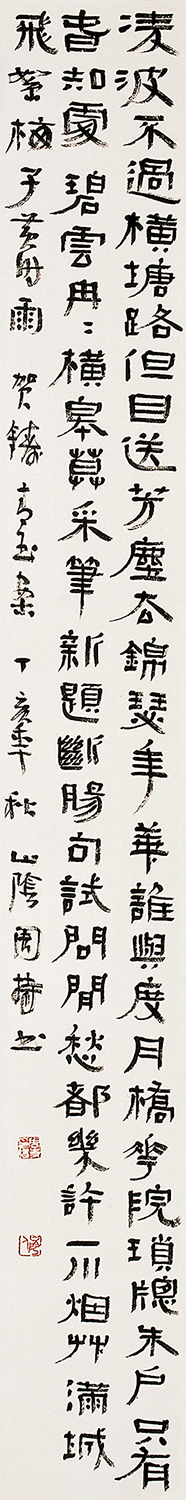 凌波不過橫塘路但目送芳塵去錦瑟年華誰與度月橋花院瑣牕朱戶只有
春知處碧雲冉〻橫皋莫采筆新題斷腸句試問閒愁都幾許一川烟艸滿城
飛絮梅子黃時雨 賀鑄青玉案 丁亥年秋 山陰周書